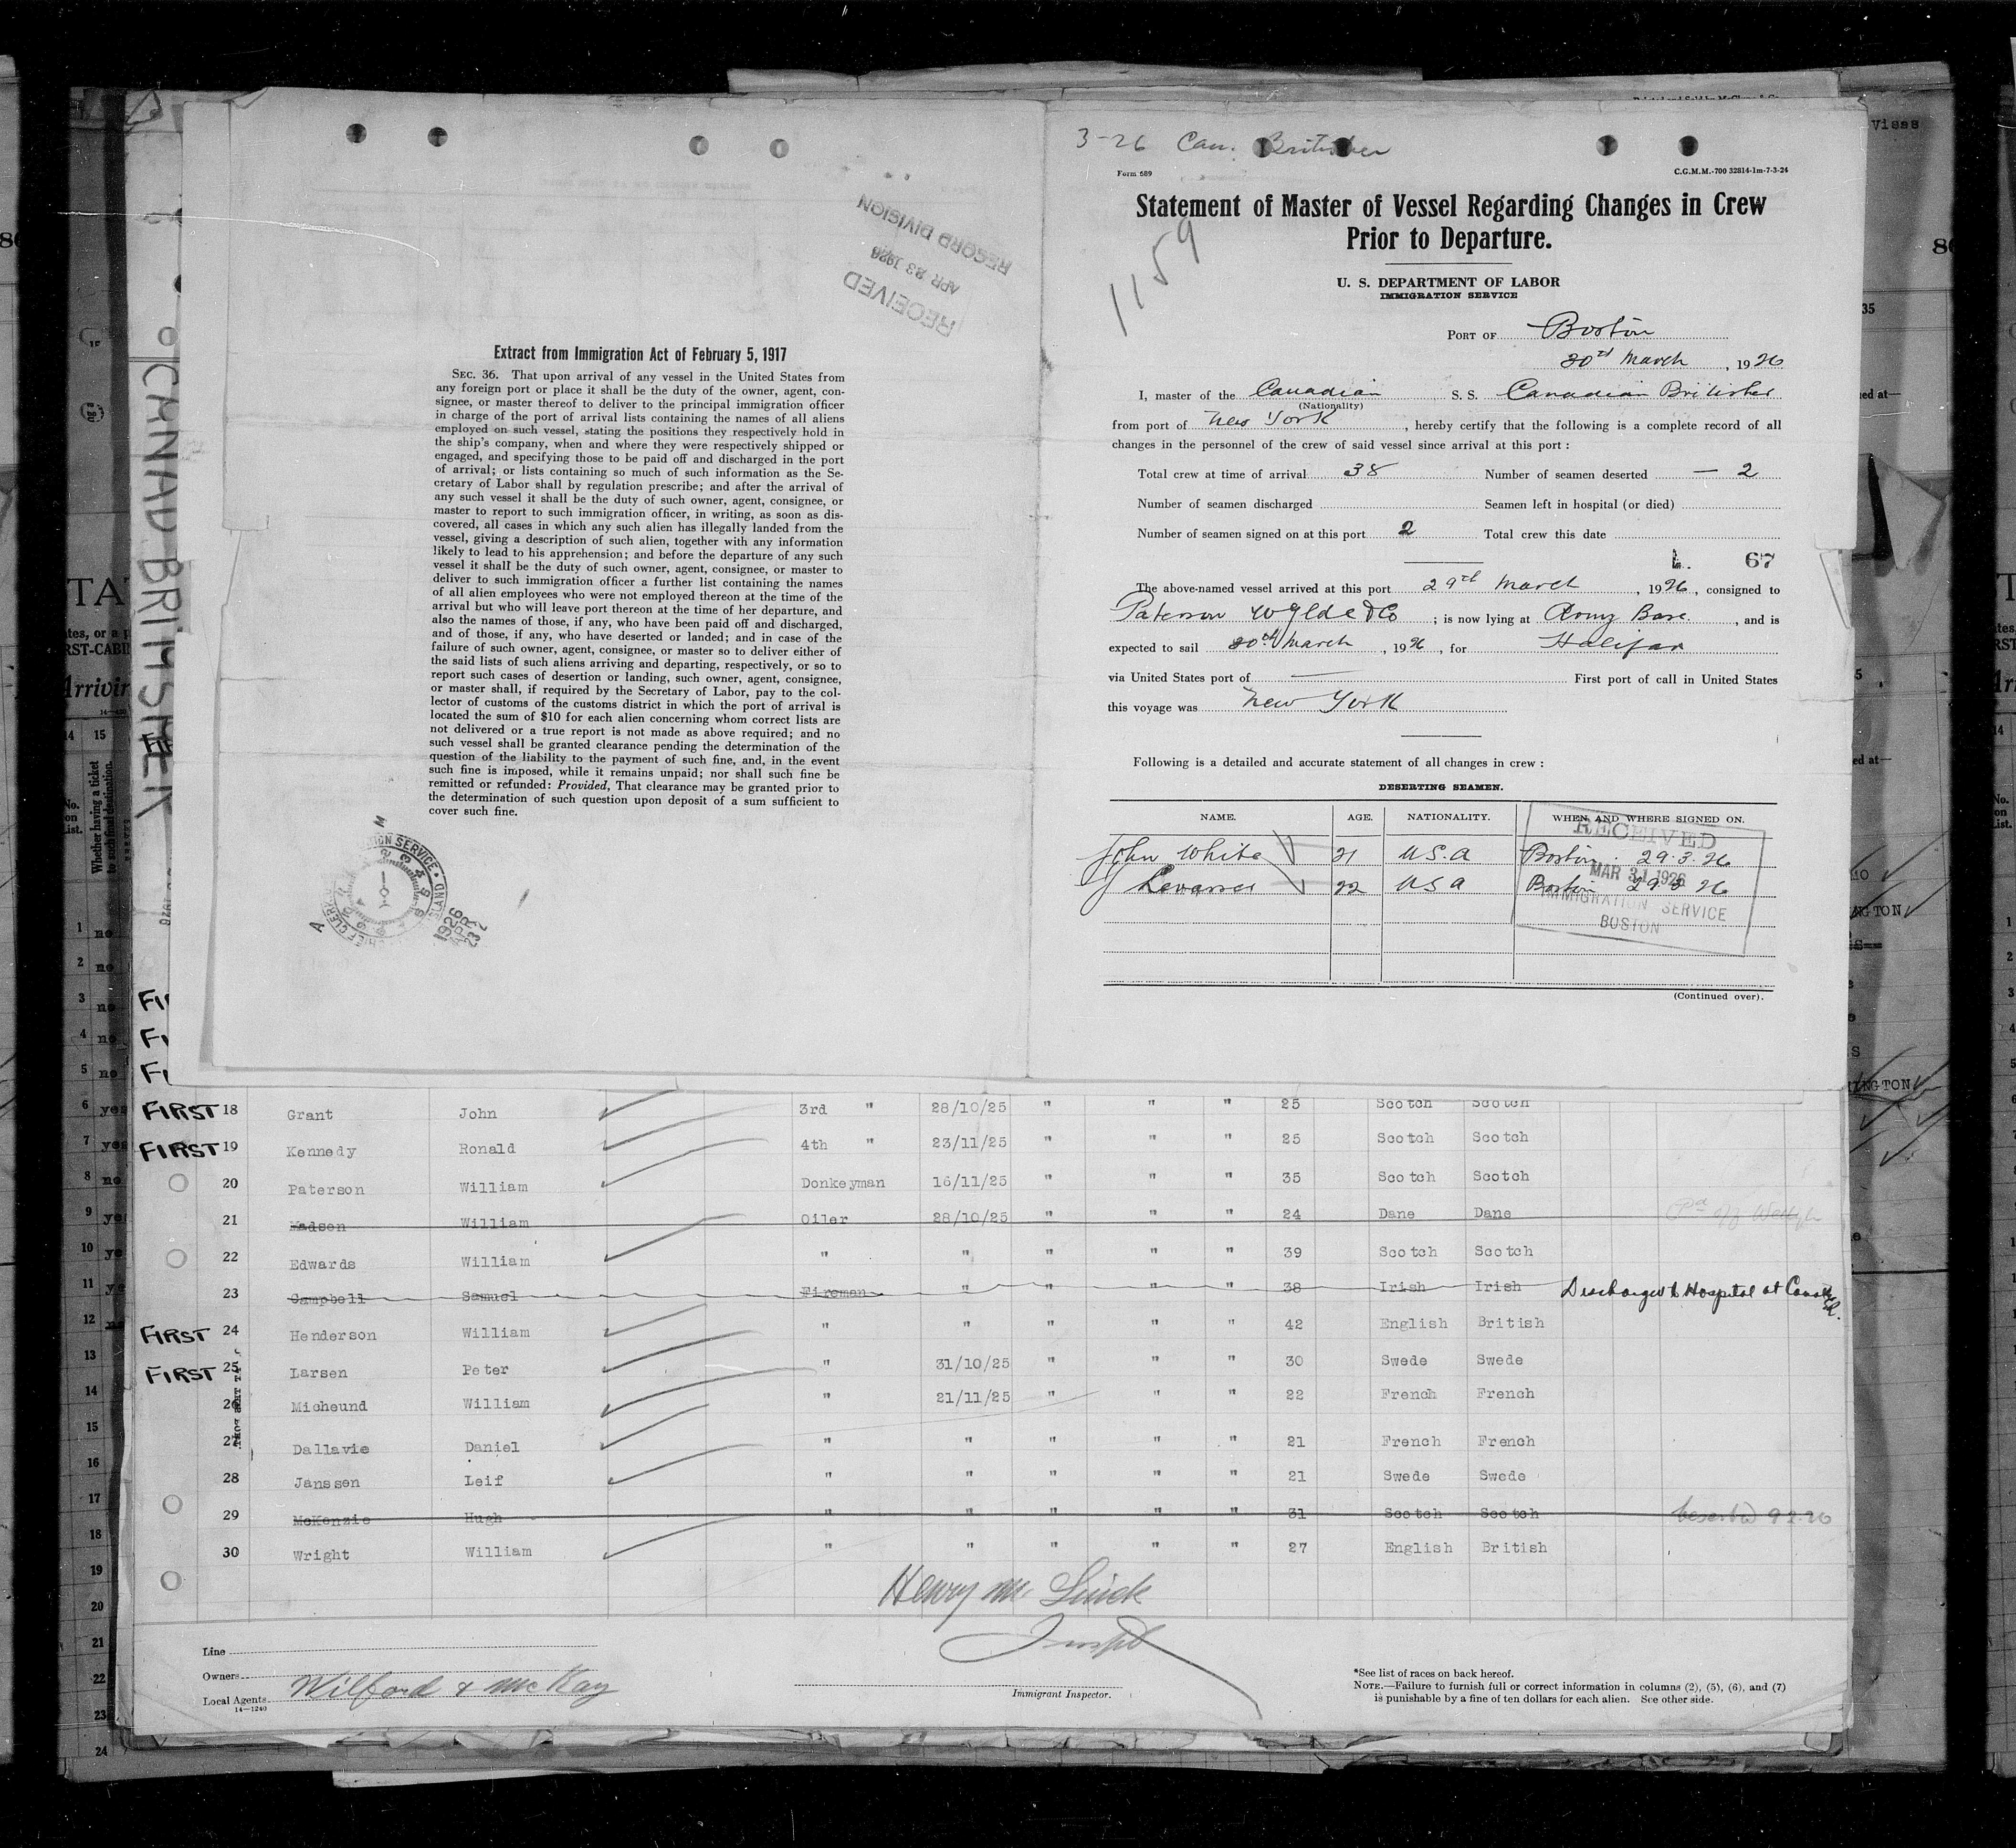 Extract from Immigration Act of February 5, 1917
SEC. 36. That upon arrival of any vessel in the United States from
any foreign port or place it shall be the duty of the owner, agent, con-
signee, or master thereof to deliver to the principal immigration officer
in charge of the port of arrival lists containing the names of all aliens
employed on such vessel, stating the positions they respectively hold in
the ship's company, when and where they were respectively shipped or
engaged, and specifying those to be paid off and discharged in the port
of arrival; or lists containing so much of such information as the Se-
cretary of Labor shall by regulation prescribe; and after the arrival of
any such vessel it shall be the duty of such owner, agent, consignee, or
master to report to such immigration officer, in writing, as soon as dis-
covered, all cases in which any such alien has illegally landed from the
vessel, giving a description of such alien, together with any information
likely to lead to his apprehension; and before the departure of any such
vessel it shall be the duty of such owner, agent, consignee, or master to
deliver to such immigration officer a further list containing the names
of all alien employees who were not employed thereon at the time of the
arrival but who will leave port thereon at the time of her departure, and
also the names of those, if any, who have been paid off and discharged,
and of those, if any, who have deserted or landed; and in case of the
failure of such owner, agent, consignee, or master so to deliver either of
the said lists of such aliens arriving and departing, respectively, or so to
report such cases of desertion or landing, such owner, agent, consignee,
or master shall, if required by the Secretary of Labor, pay to the col-
lector of customs of the customs district in which the port of arrival is
located the sum of $10 for each alien concerning whom correct lists are
not delivered or a true report is not made as above required; and no
such vessel shall be granted clearance pending the determination of the
question of the liability to the payment of such fine, and, in the event
such fine is imposed, while it remains unpaid; nor shall such fine be
remitted or refunded: Provided, That clearance may be granted prior to
the determination of such question upon deposit of a sum sufficient to
cover such fine.
RECEIVED
APR 23 1926
RECORD DIVISION
3-26 Can. Britisher
Form 689
C.G.M.M.-700 32814-1m-7-3-24
Statement of Master of Vessel Regarding Changes in Crew
Prior to Departure.
1159
U. S. DEPARTMENT OF LABOR
IMMIGRATION SERVICE
PORT OF Boston
30th March, 1926
I, master of the Canadian S. S. Canadian Britisher
(Nationality)
from port of New York, hereby certify that the following is a complete record of all
changes in the personnel of the crew of said vessel since arrival at this port :
Total crew at time of arrival 38 Number of seamen deserted — 2
Number of seamen discharged Seamen left in hospital (or died)
Number of seamen signed on at this port 2 Total crew this date
67
The above-named vessel arrived at this port 29th March, 1926, consigned to
Paterson Wylde & Co; is now lying at Army Base, and is
expected to sail 30th March, 1926, for Halifax
via United States port of — First port of call in United States
this voyage was New York
Following is a detailed and accurate statement of all changes in crew :
DESERTING SEAMEN.
NAME. AGE. NATIONALITY. WHEN AND WHERE SIGNED ON.
John White 21 U.S.A Boston. 29.3.26
22 USA Boston 29.3 26
RECEIVED
MAR 31 1926
IMMIGRATION SERVICE
BOSTON
(Continued over).
FIRST 18 Grant John 3rd " 28/10/25 " " " 25 Scotch Scotch
FIRST 19 Kennedy Ronald 4th " 23/11/25 " " " 25 Scotch Scotch
20 Paterson William Donkeyman 16/11/25 " " " 35 Scotch Scotch
21 Madsen William Oiler 28/10/25 " " " 24 Dane Dane
22 Edwards William " " " " " 39 Scotch Scotch
23 Campbell Samuel Fireman " " " " 38 Irish Irish Discharged to Hospital at
FIRST 24 Henderson William " " " " " 42 English British
FIRST 25 Larsen Peter " 31/10/25 " " " 30 Swede Swede
26 Micheund William " 21/11/25 " " " 22 French French
27 Dallavie Daniel " " " " " 21 French French
28 Janssen Leif " " " " " 21 Swede Swede
29 McKenzie Hugh " " " " " 31 Scotch Scotch
30 Wright William " " " " " 27 English British
Line
Owners
Local Agents Wilford & McKay
14—1240
Immigrant Inspector.
*See list of races on back hereof.
NOTE.—Failure to furnish full or correct information in columns (2), (5), (6), and (7)
is punishable by a fine of ten dollars for each alien. See other side.